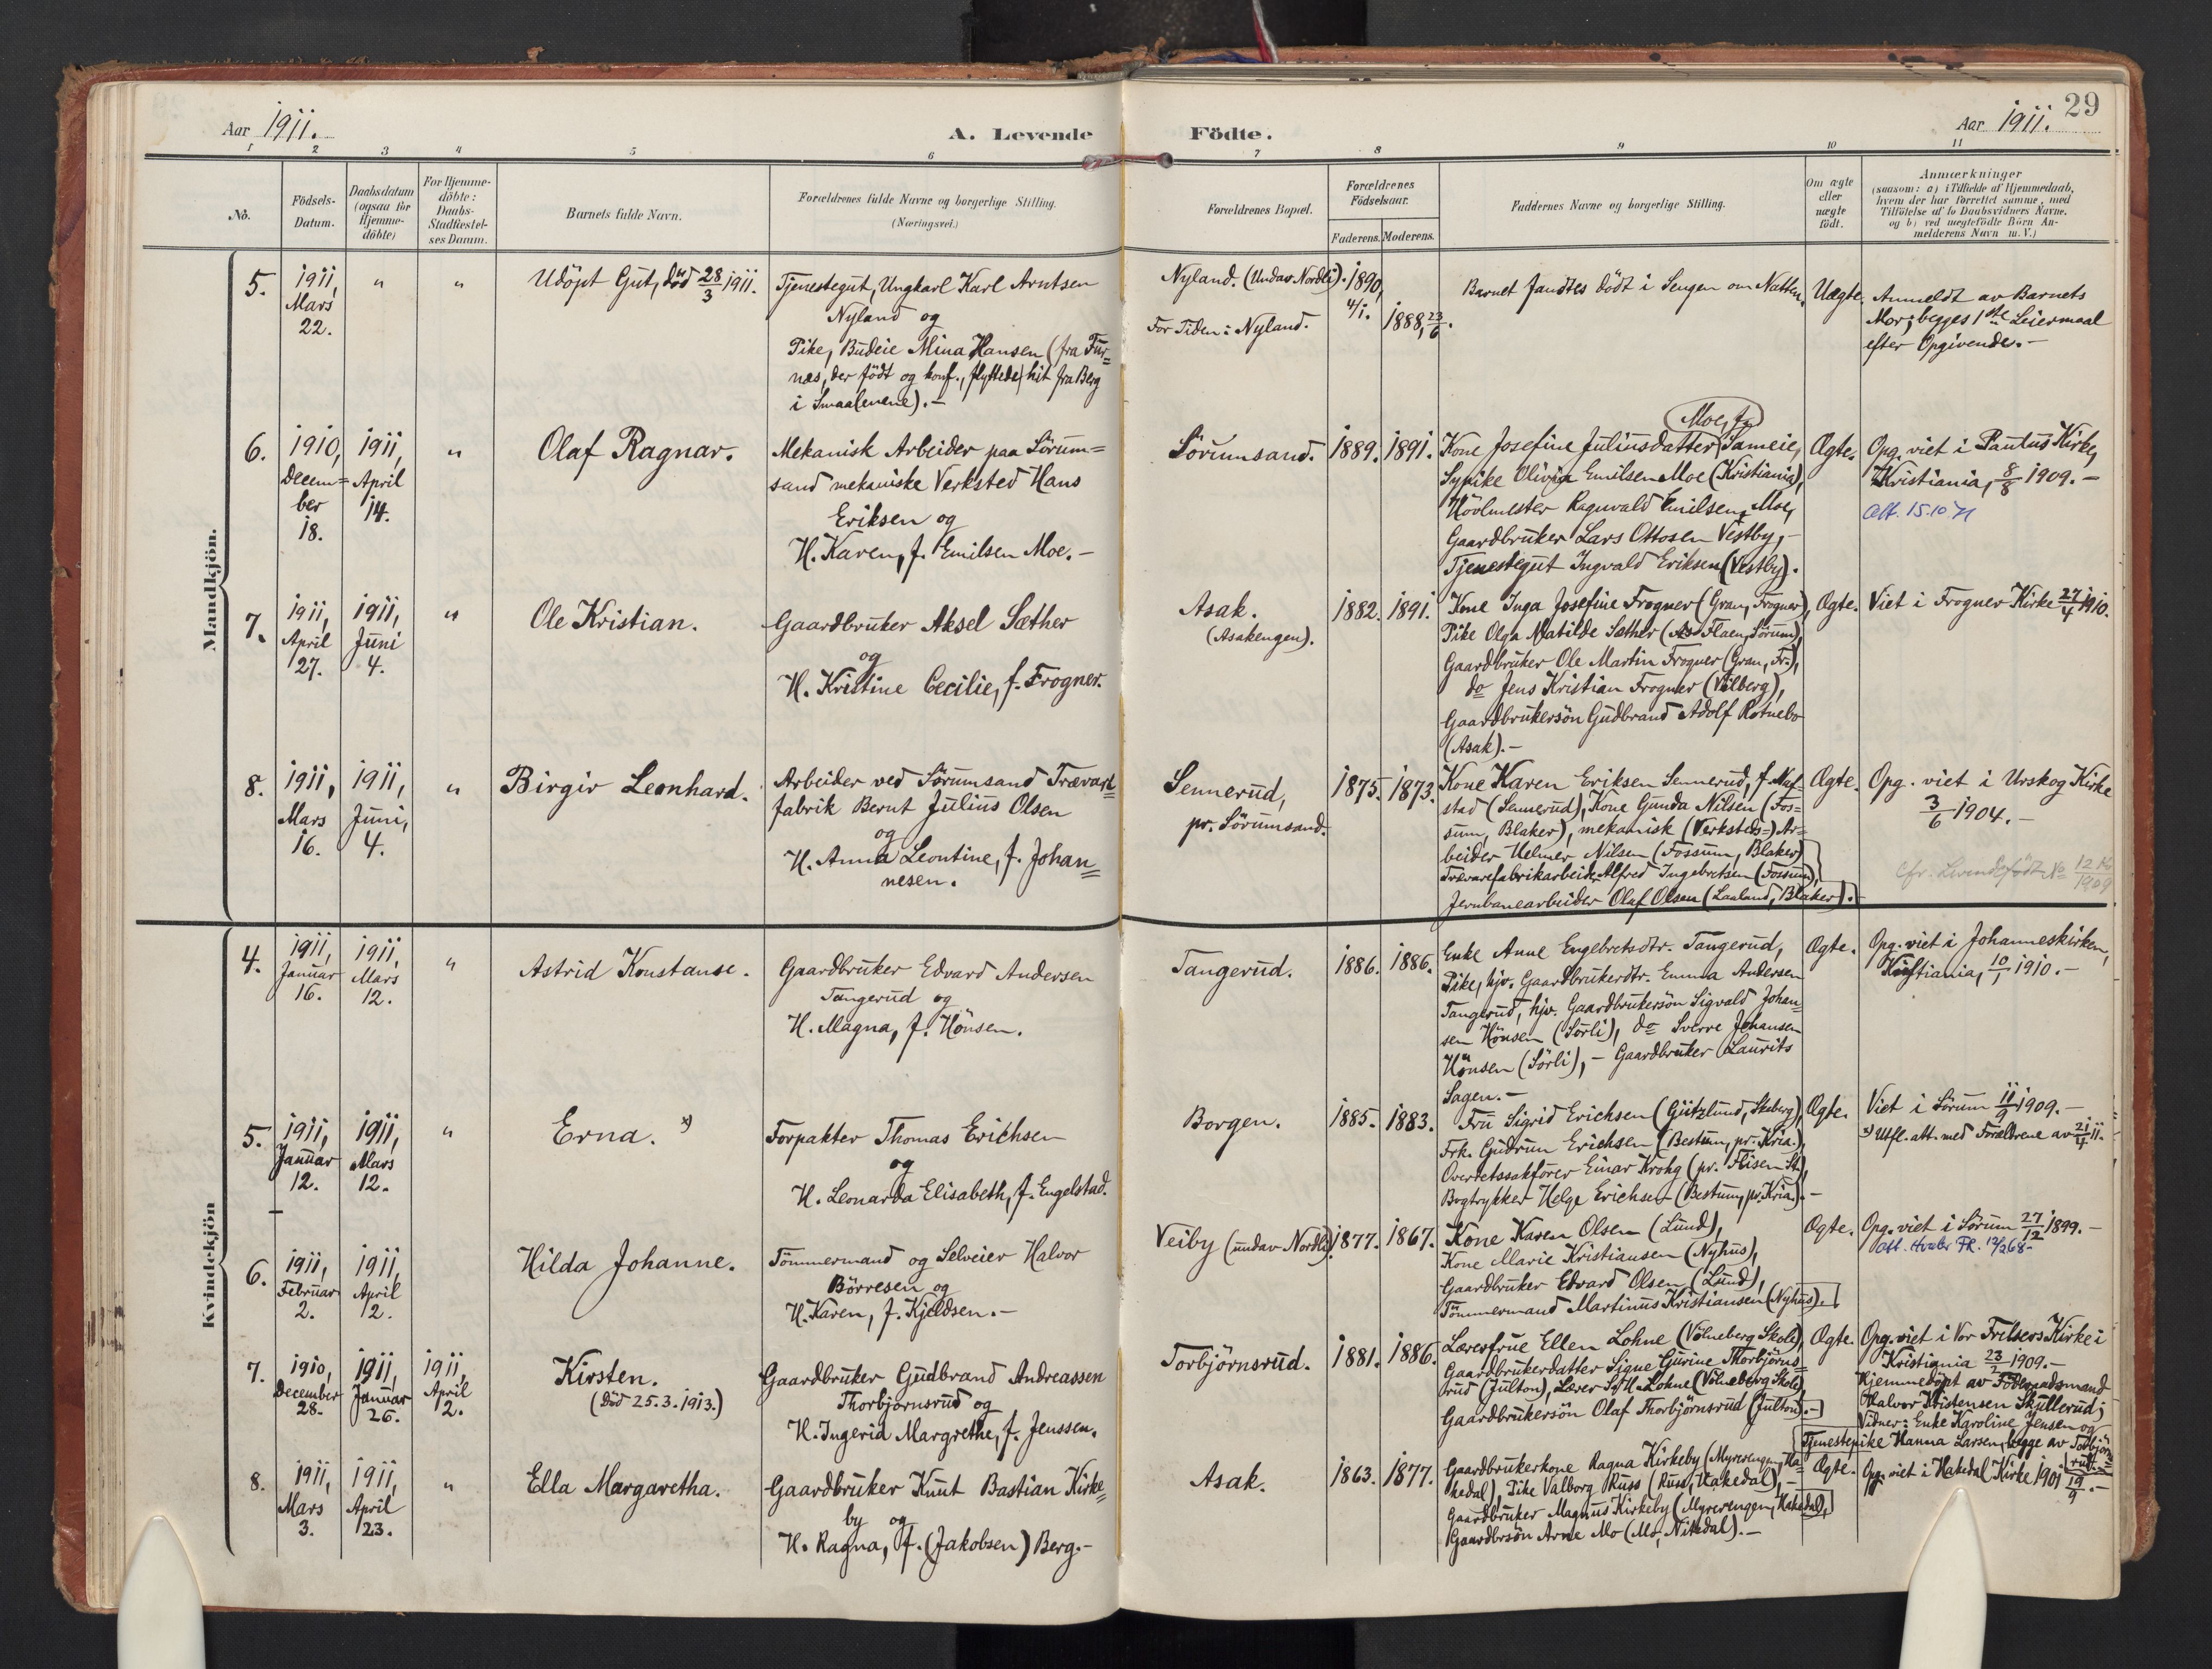 29
Aar 1911.
A. Levende Födte.
Aar 1911.
1 2 3 4 5 6 7 8 9 10 11
No.
Födsels-Datum.
Daabsdatum (ogsaa for Hjemme-döbte)
For Hjemme-döbte: Daabs-Stadfæstel-ses Datum.
Barnets fulde Navn.
Forældrenes fulde Navne og borgerlige Stilling.
(Næringsvei.)
Forældrenes Bopæl.
Forældrenes Födselsaar.
Faderens. Moderens.
Faddernes Navne og borgerlige Stilling.
Om ægte eller uægte födt.
Anmærkninger
(saasom: a) i Tilfælde af Hjemmedaab,
hvem der har forrettet samme, med
Tilföielse af to Daabsvidners Navne,
og b) ved uægtefödte Börn An-
melderens Navn m. V.)
Mandkjön.
5.
1911,
Mars
22.
"
"
Udöpt Gut, död 28/3 1911.
Tjenestegut, Ungkarl Karl Arntsen
Nyland og
Pike, Budeie Mina Hansen (fra Fur=
nes, der födt og konf., flyttede hit fra Berg
i Smaalenene).-
Nyland. (Undav Nordli).
For Tiden: Nyland.
1890,
4/1.
1888, 23/6.
Barnet fandtes dödt i Sengen om Natten.
Uægte.
Anmeldt av Barnets
Mor; begges 1ste Leiermaal
efter Opgivende.-
6.
1910,
Decem=
ber
18.
1911,
April
14.
"
Olaf Ragnar.
Mekanisk Arbeider paa Sörum=
sand mekaniske Verksted Hans
Eriksen og
H. Karen, f. Emilsen Moe.-
Sörumsand.
1889.
1891.
Moe, f.
Kone Josefine Juliusdatter Sameie,
Sypike Olivia Emilsen Moe (Kristiania),
Hövlmester Ragnvald Emilsen Moe,
Gaardbruker Lars Ottosen Vestby,-
Tjenestegut Ingvald Eriksen (Vestby).
Ægte.
Opg. viet i Paulus Kirke,
Kristiania, 8/8 1909.-
Att. 15.10 71
7.
1911,
April
27.
1911,
Juni
4.
"
Ole Kristian.
Gaardbruker Aksel Sæther
og
H. Kristine Cecilie, f. Frogner.
Asak.
(Asakengen).
1882.
1891.
Kone Inga Josefine Frogner (Gran, Frogner),
Pike Olga Matilde Sæther (Flaen, Sörum),
Gaardbruker Ole Martin Frogner (Gran, Fr.),
do Jens Kristian Frogner (Vilberg),
Gaardbrukersön Gudbrand Adolf Rotnebo
(Asak).-
Ægte.
Viet i Frogner Kirke 27/4 1910.
8.
1911,
Mars
16.
1911,
Juni,
4.
"
Birgir Leonhard.
Arbeider ved Sörumsand Trævare=
fabrik Bernt Julius Olsen
og
H. Anna Leontine, f. Johan=
nesen.
Sennerud,
pr. Sörumsand.
1875.
1873.
Kone Karen Eriksen Sennerud, f. Naf=
stad (Sennerud), Kone Gunda Nilsen (Fos=
sum, Blaker), mekanisk (Verksteds=) Ar=
beider Helmer Nilsen (Fossum, Blaker)
Trævarefabrikarbeid. Alfred Ingebretsen (Fossum),
Jernbanearbeider Olaf Olsen (Laaland, Blaker).
Ægte.
Opg. viet i Urskog Kirke
3/6 1904.-
Cfr. Levendefödt No 12
1909
Kvindekjön
4.
1911,
Januar
16.
1911,
Mars
12.
"
Astrid Konstanse.
Gaardbruker Edvard Andersen
Tangerud og
H. Magna, f. Hönsen.
Tangerud.
1886.
1886.
Enke Anne Engebretsdtr. Tangerud,
Pike, hjv. Gaardbrukerdtr. Emma Andersen
Tangerud, hjv. Gaardbrukersön Sigvald Johan=
sen Hönsen (Sörli), do Sverre Johansen
Hönsen (Sörli),- Gaardbruker Laurits
Sagen.-
Ægte.
Opg. viet i Johanneskirken,
Kristiania, 10/1 1910.-
5.
1911,
Januar
12.
1911,
Mars
12.
"
Erna. x)
Forpakter Thomas Erichsen
og
H. Leonarda Elisabeth, f. Engelstad.
Borgen.
1885.
1883.
Fru Sigrid Erichsen (Gjitzlund, Skeberg),
Frk. Gudrun Erichsen (Bestum, pr. Kria.),
Overretssakförer Einar Krohg (pr. Flisen St),
Bogtrykker Helge Erichsen (Bestum, pr. Kria).-
Ægte.
Viet i Sörum 11/9 1909.-
x) Utfl.att. med Forældrene av 21/4 11.
6.
1911,
Februar
2.
1911,
April
12.
Hilda Johanne.
Tömmermand og Selveier Halvor
Börresen og
H. Karen, f. Kjeldsen.-
Veiby (undav Nordli).
1877.
1867.
Kone Karen Olsen (Lund),
Kone Marie Kristiansen (Nyhus),
Gaardbruker Edvard Olsen (Lund),
Tömmermand Martinus Kristiansen (Nyhus).
Ægte.
Opg. viet i Sörum 27/12 1899.-
att. Hvaler Pk. 12/3 68-
7.
1910,
December
28.
1911,
Januar
26.
1911,
April
2.
Kirsten.
(Död 25.3.1913.)
Gaardbruker Gudbrand Andreassen
Thorbjörnsrud og
H. Ingerid Margrethe, f. Jenssen.
Torbjörnsrud.
1881.
1886.
Lærerfrue Ellen Lohne (Völneberg Skole),
Gaardbrukerdatter Signe Gurine Thorbjörns=
rud (Julton), Lærer Lohne (Völneberg Skole),
Gaardbrukersön Olaf Thorbjörnsrud (Julton).-
Ægte.
Opg. viet i Vor Frelsers Kirke i
Kristiania 23/2 1909.-
Hjemmedöpt av Föderaadsmand
Halvor Kristensen Skullerud;
Vidner: Enke Karoline Jensen og
Tjenestepike Hanna Larsen, begge av Torbjörns=
rud.
8.
1911,
Mars
3.
1911,
April
23.
"
Ella Margaretha.
Gaardbruker Knut Bastian Kirke=
by og
H. Ragna, f. (Jakobsen) Berg.-
Asak.
1863.
1877.
Gaardbrukerkone Ragna Kirkeby (Myrerengen, Ha=
kedal), Pike Valborg Russ (Russ, Hakedal),-
Gaardbruker Magnus Kirkeby (Myrerengen, Hakedal),
Gaardbrsön Arne Mo (Mo, Nittedal).-
Ægte.
Opg. viet i Hakedal Kirke 1901 19/9.-